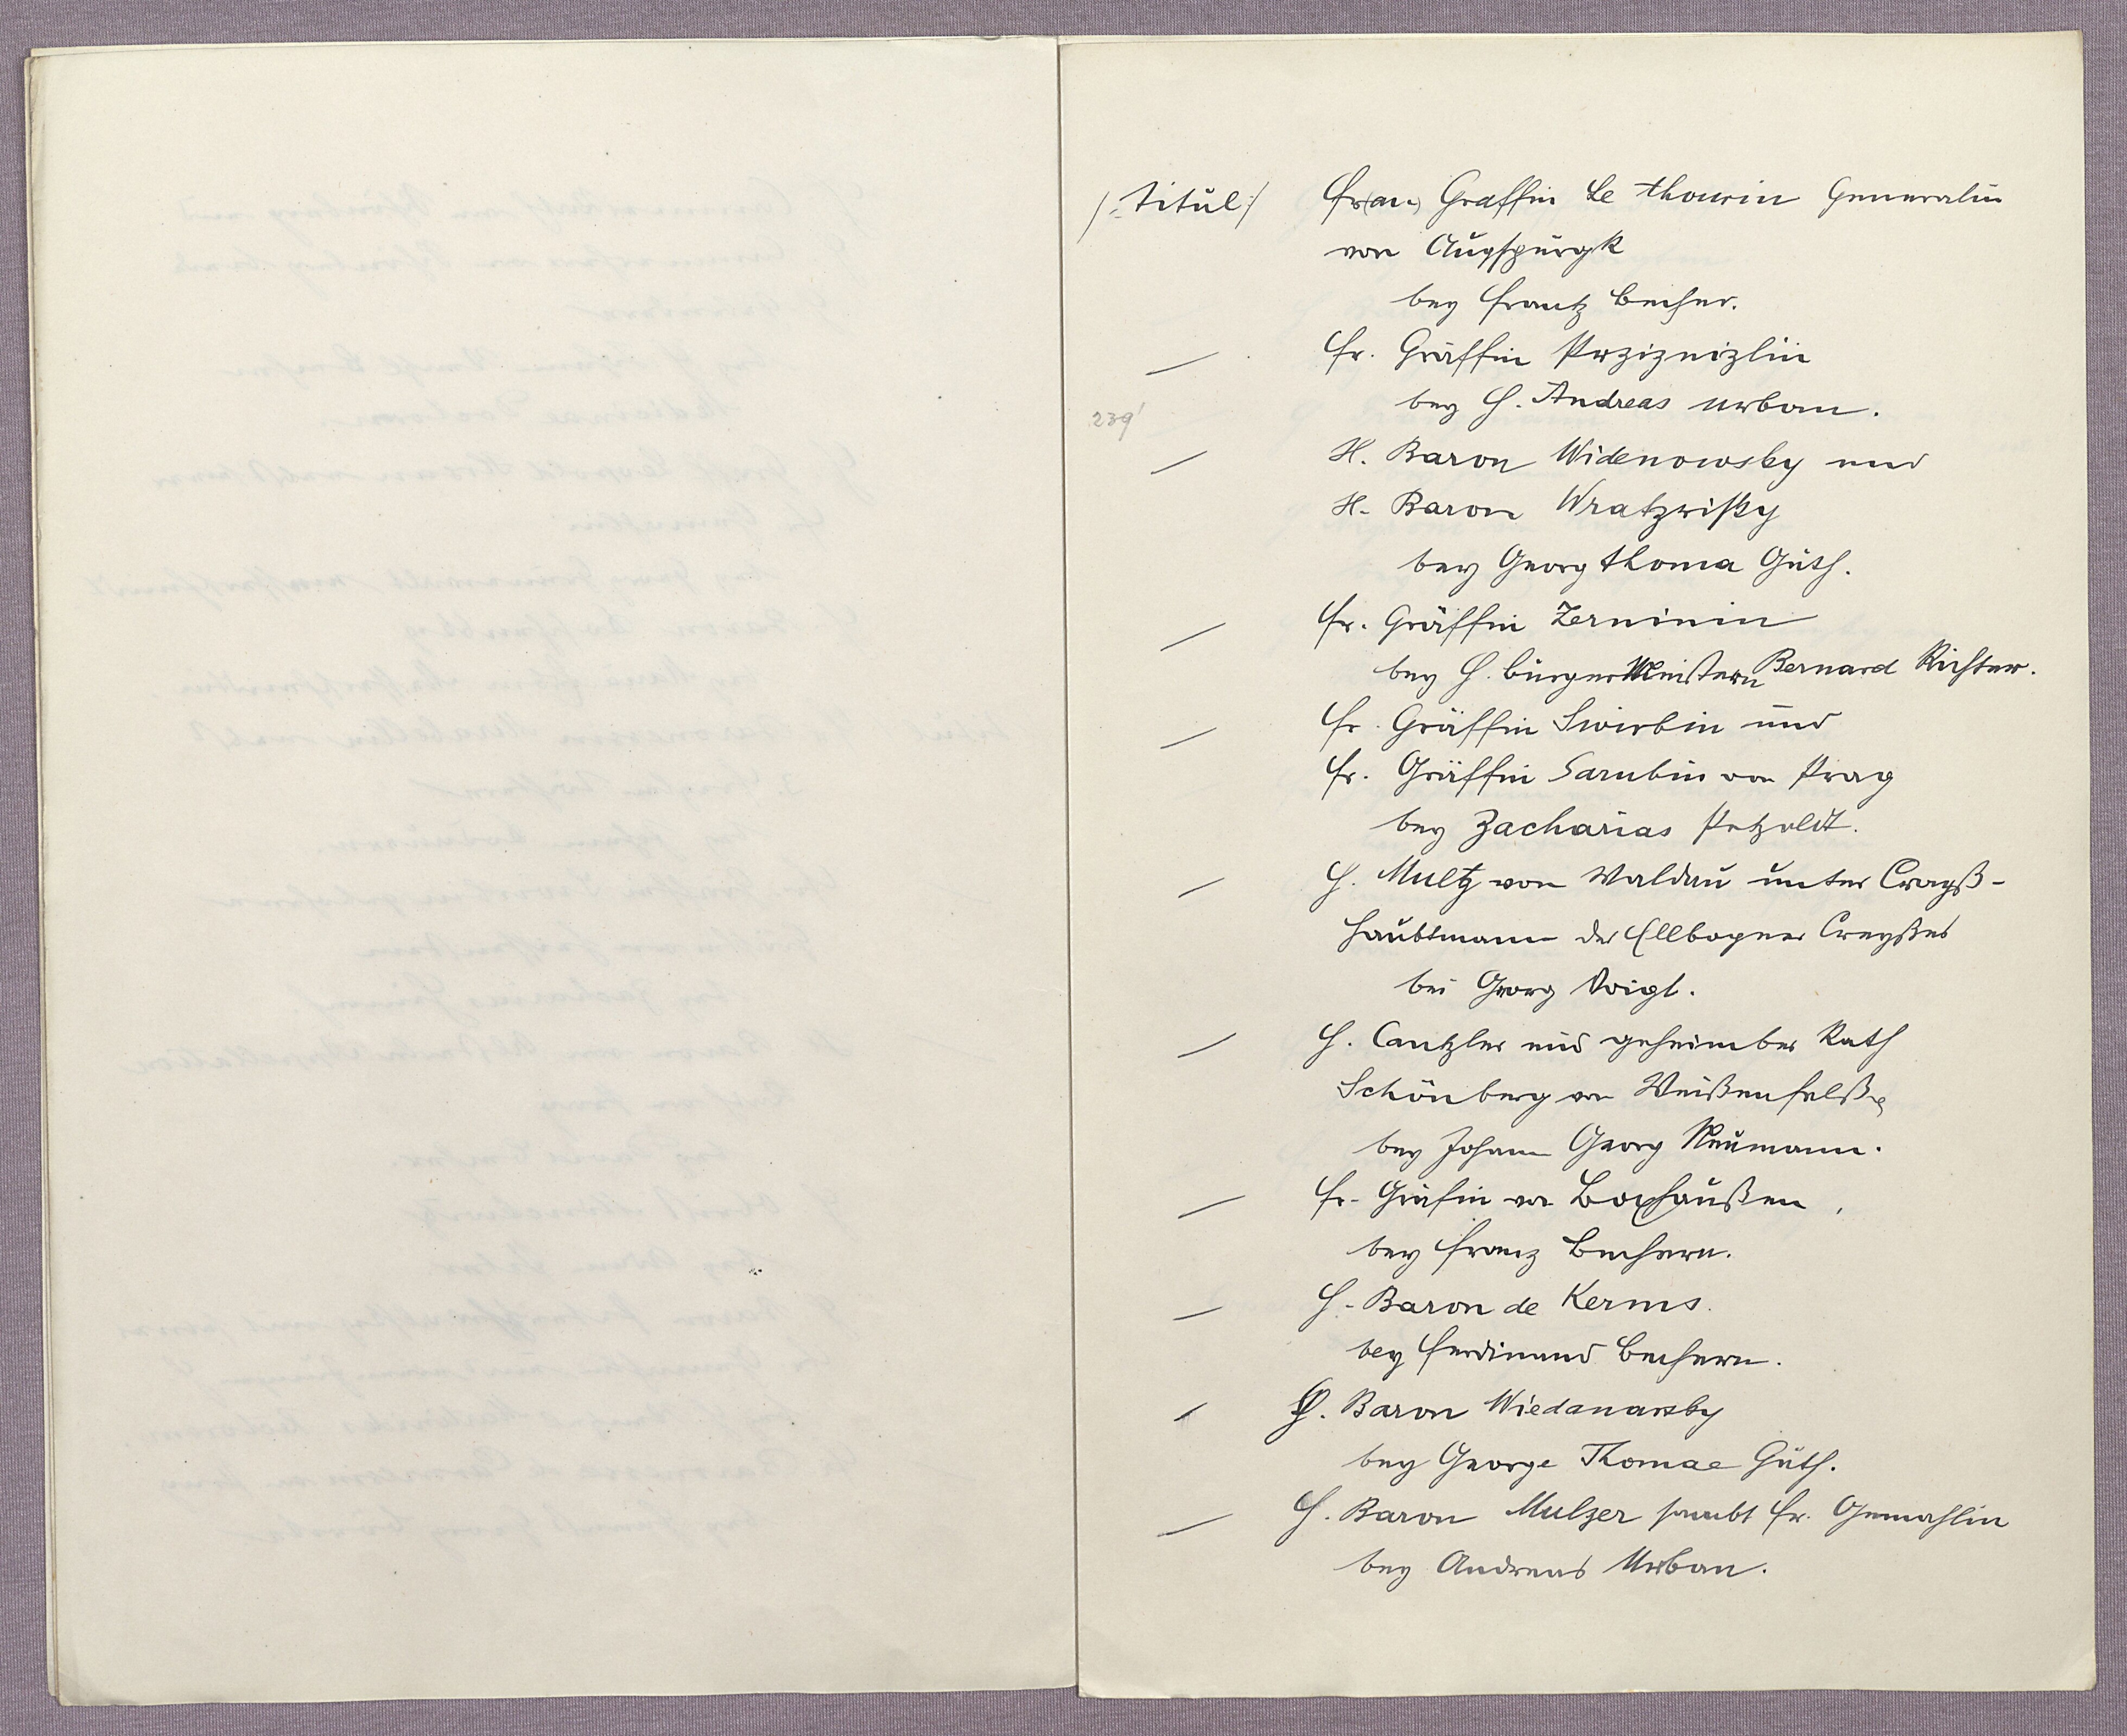 /: Titul :/ Fr(au) Graffin Le Thourin Generalin
von Augspurgk
bey Frantz Becher.
— Fr. Gräffin
bey H. Andreas Urban.
239'
— H. Baron Widenowsky und
H. Baron
bey Georg Thoma Güth.
— Fr. Gräffin Zerninin
bey H. BürgerMeistern Bernard Richter.
— Fr. Gräffin Swirbin und
Fr. Gräffin von Prag
bey Zacharias Petzoldt.
— H. Multz von Waldau unter Crayß-
haubtmann des Ellbogner Creyßes
bei Georg Voigt.
— H. Cantzler und geheimber Rath
Schönberg von Weißenfelß
bey Johann Georg Neumann.
— Fr. Gräfin von
bey Franz Bechern.
— H. Baron de Kerms.
bey Ferdinand Bechern.
— H. Baron
bey George Thomae Güth.
— H. Baron Mulzer sambt Fr. Gemahlin
bey Andreas Urban.